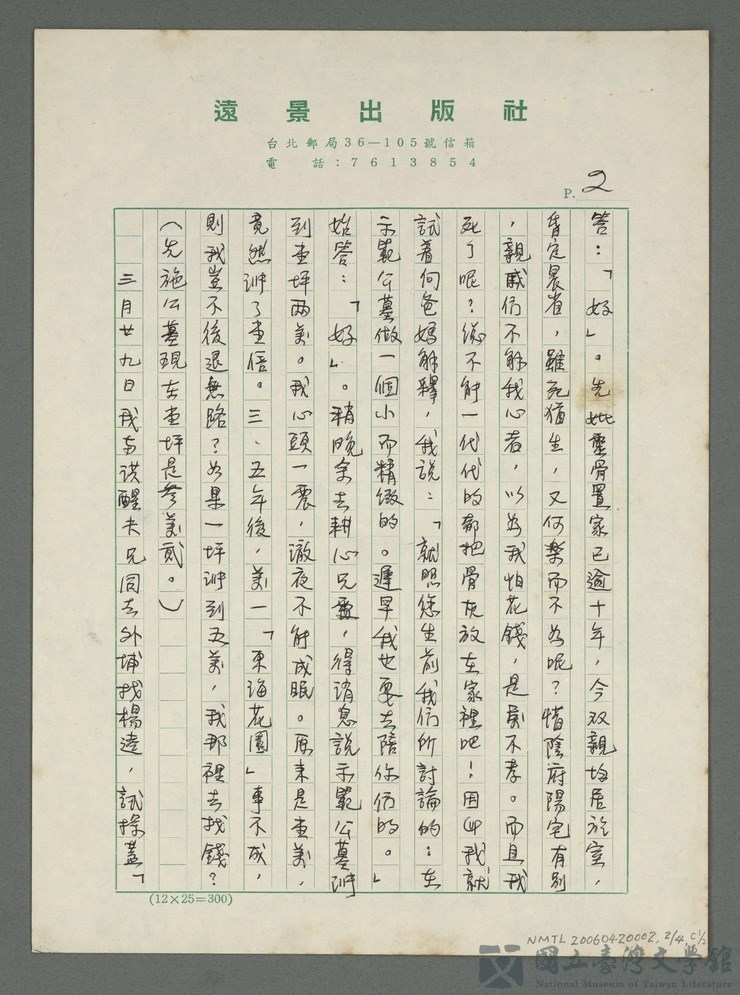 遠景出版社
台北郵局36—105號信箱
電話：7613854
P. 2
答：「好」。先妣靈骨置家已逾十年，今双親均居於室，
昏定晨省，雖死猶生，又何樂而不為呢？惜陰府陽宅有別
，親戚们不解我心者，以為我怕花錢，是為不孝。而且我
死了呢？總不能一代代的都把骨灰放在家裡吧！因此我就
試着向爸媽解釋，我說：「就照您生前我们所討論的：在
示範公墓做一個小而精緻的。遲早我也要去陪你们的。」
始答：「好」。稍晚余去耕心兄處，得消息說示範公墓漲
到壹坪兩萬。我心頭一震，澈夜不能成眠。原來是壹萬，
竟然漲了壹倍。三、五年後，萬一「東海花園」事不成，
則我豈不後退無路？如果一坪漲到五萬，我那裡去找錢？
（先施公墓現在壹坪是參萬貳。）
三月廿九日我与洪醒夫兄同去外埔找楊逵，試探蓋「
(12×25=300)
NMTL 20060420002, 2/4, C1/2
國立臺灣文學館
National Museum of Taiwan Literature